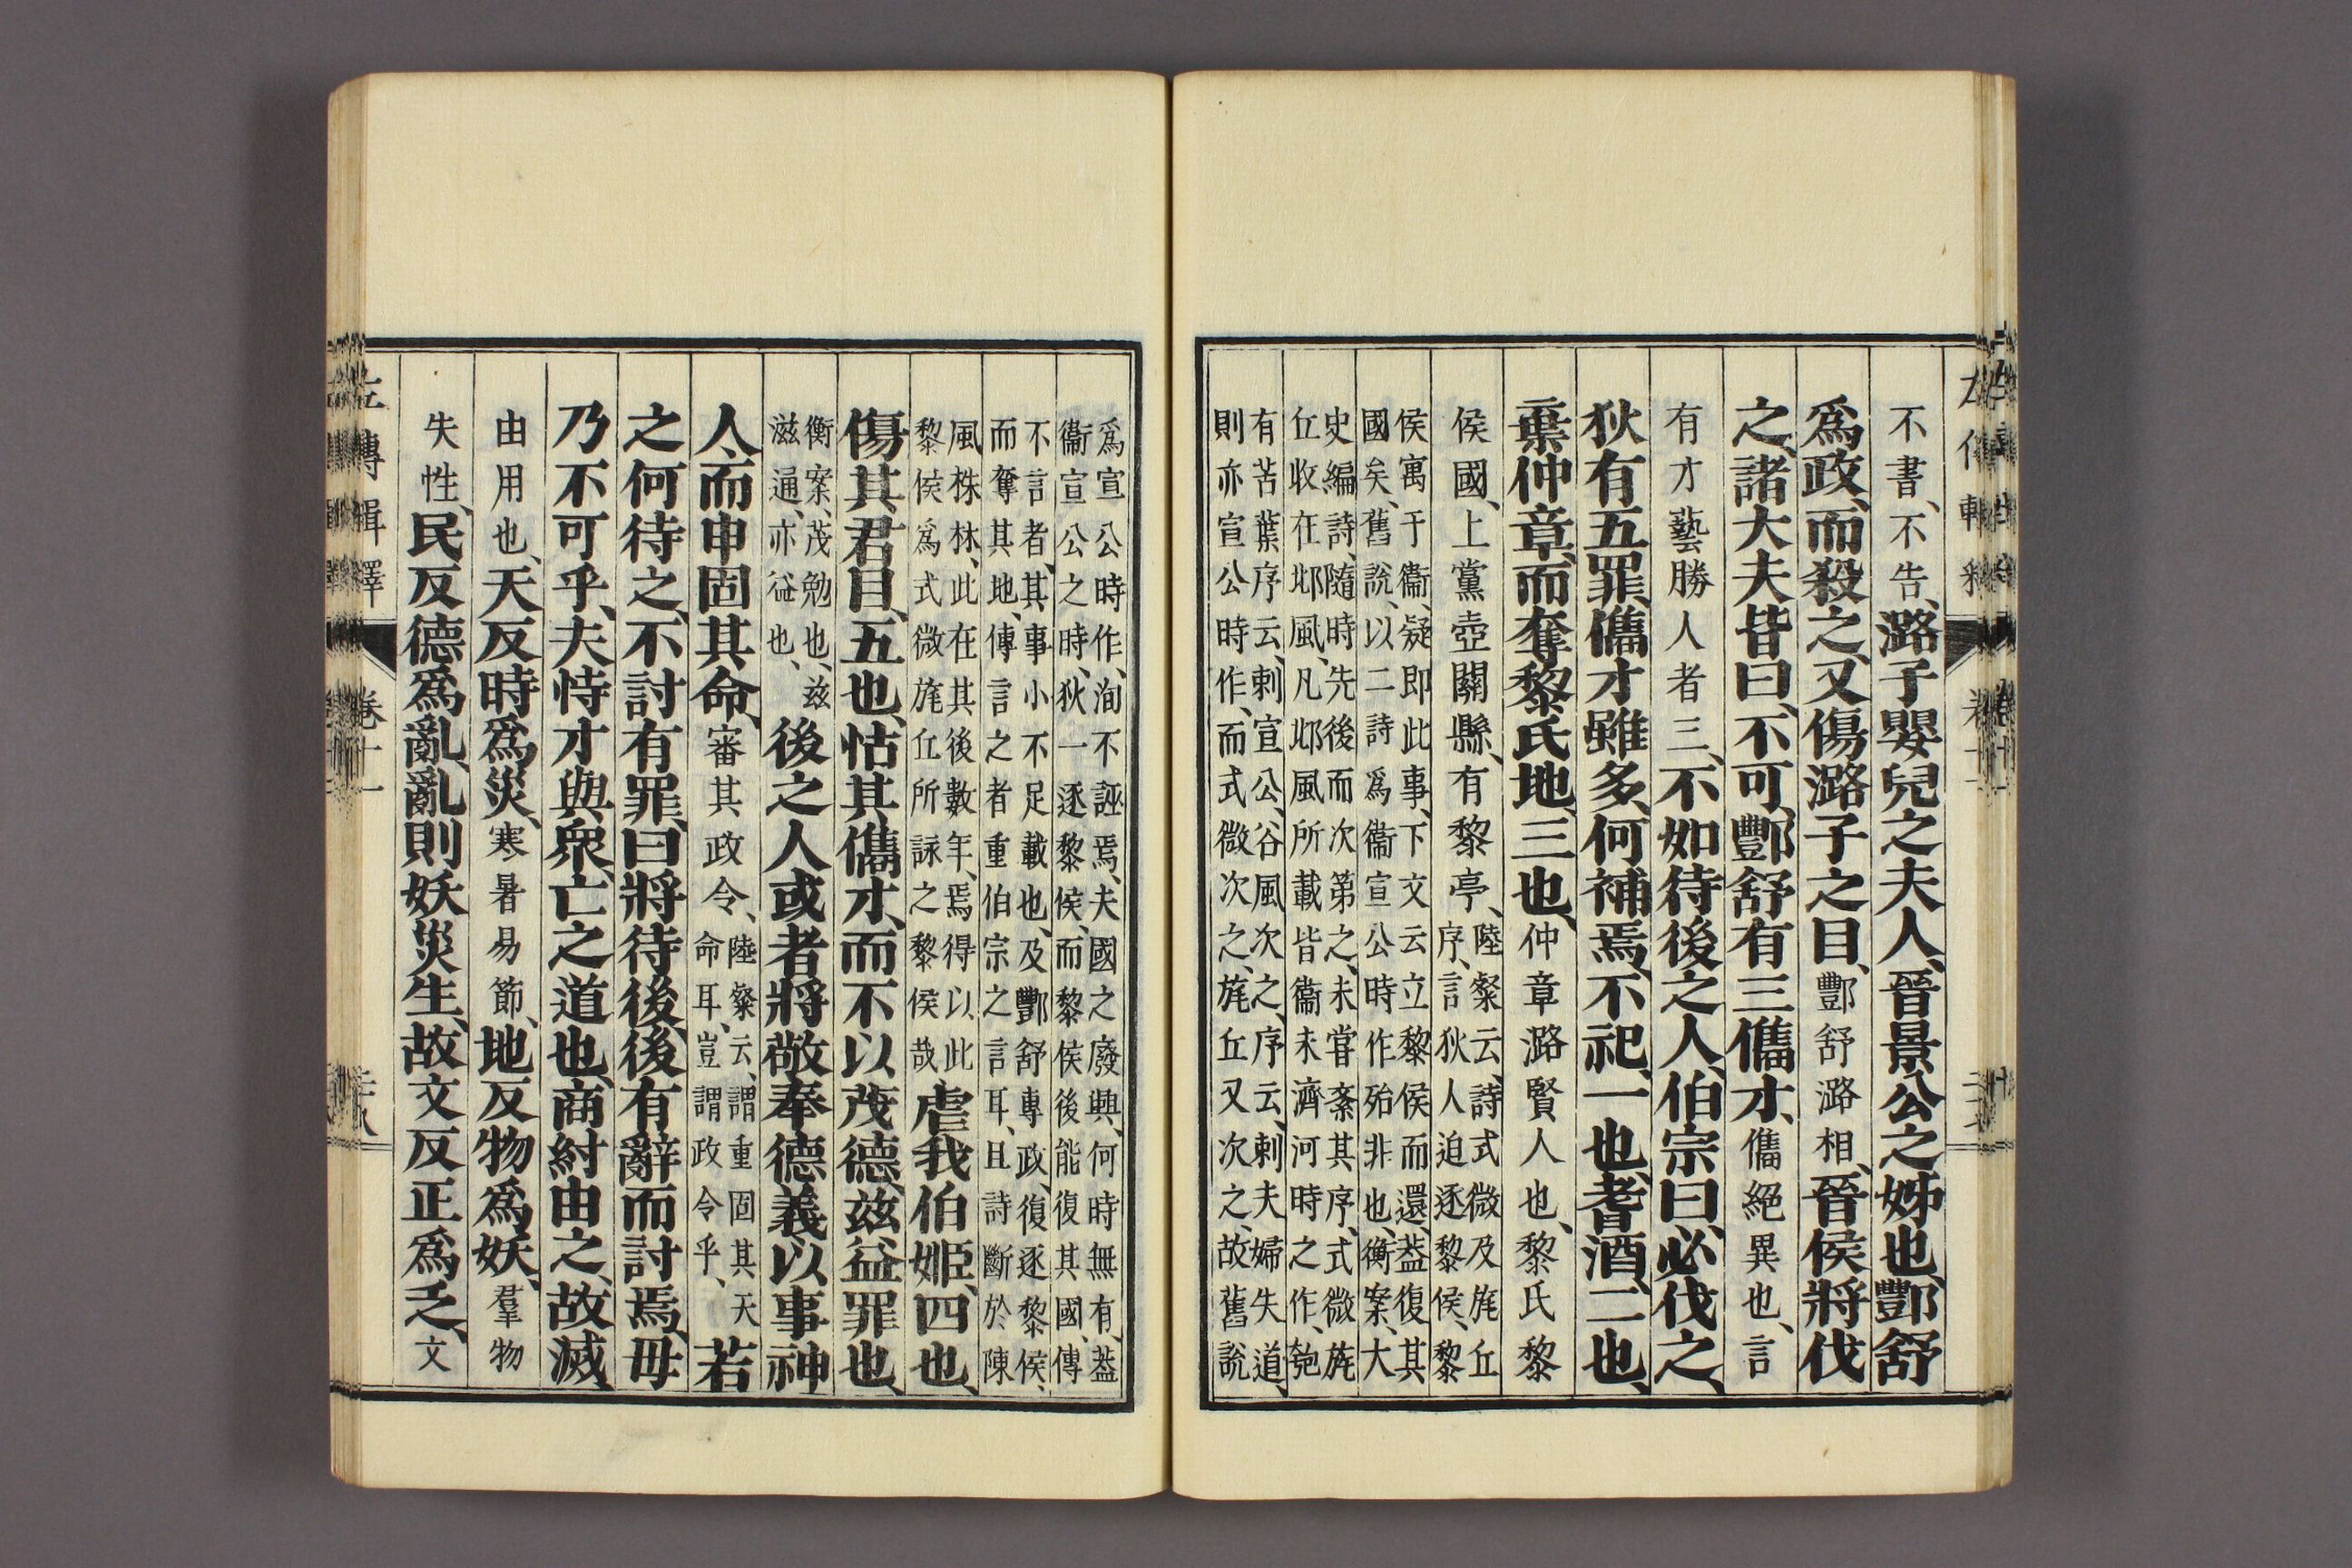 不書、不告、潞子嬰兒之夫人、晉景公之姊也、酆舒
爲政、而殺之、又傷潞子之目、酆舒潞相、晉侯將伐
之、諸大夫皆曰、不可、酆舒有三儁才、儁絕異也、言
有才藝勝人者三、不如待後之人、伯宗曰、必伐之、
狄有五罪、儁才雖多、何補焉、不祀、一也、耆酒、二也、
棄仲章、而奪黎氏地、三也、仲章潞賢人也、黎氏黎
侯國、上黨壺關縣、有黎亭、
陸粲云、詩式微及旄丘
序、言狄人迫逐黎侯、黎
侯寓于衞、疑即此事、下文云立黎侯而還、葢復其
國矣、舊說、以二詩爲衞宣公時作殆非也、衡案、大
史編詩、隨時先後而次第之、未甞紊其序、式微旄
丘收在邶風、凡邶風所載皆衞未濟河時之作、匏
有苦葉序云、刺宣公、谷風次之、序云、刺夫婦失道、
則亦宣公時作、而式微次之、旄丘又次之、故舊說
爲宣公時作、洵不誣焉、夫國之廢興、何時無有、葢
衞宣公之時、狄一逐黎侯、而黎侯後能復其國、傳
不言者、其事小不足載也、及酆舒專政、復逐黎侯、
而奪其地、傳言之者重伯宗之言耳、且詩斷於陳
風株林、此在其後數年、焉得以此
黎侯爲式微旄丘所詠之黎侯哉
虐我伯姬、四也、
傷其君目、五也、怙其儁才、而不以茂德、茲益罪也、
衡案、茂勉也、茲
滋通、亦益也、
後之人或者將敬奉德義以事神
人、而申固其命、審其政令、
陸粲云、謂重固其天
命耳、豈謂政令乎、
若
之何待之、不討有罪、曰將待後、後有辭而討焉、毋
乃不可乎、夫恃才與衆、亡之道也、商紂由之、故滅、
由用也、天反時爲災、寒暑易節、地反物爲妖、羣物
失性、民反德爲亂、亂則妖災生、故文反正爲乏、文
左傳輯釋
卷十一